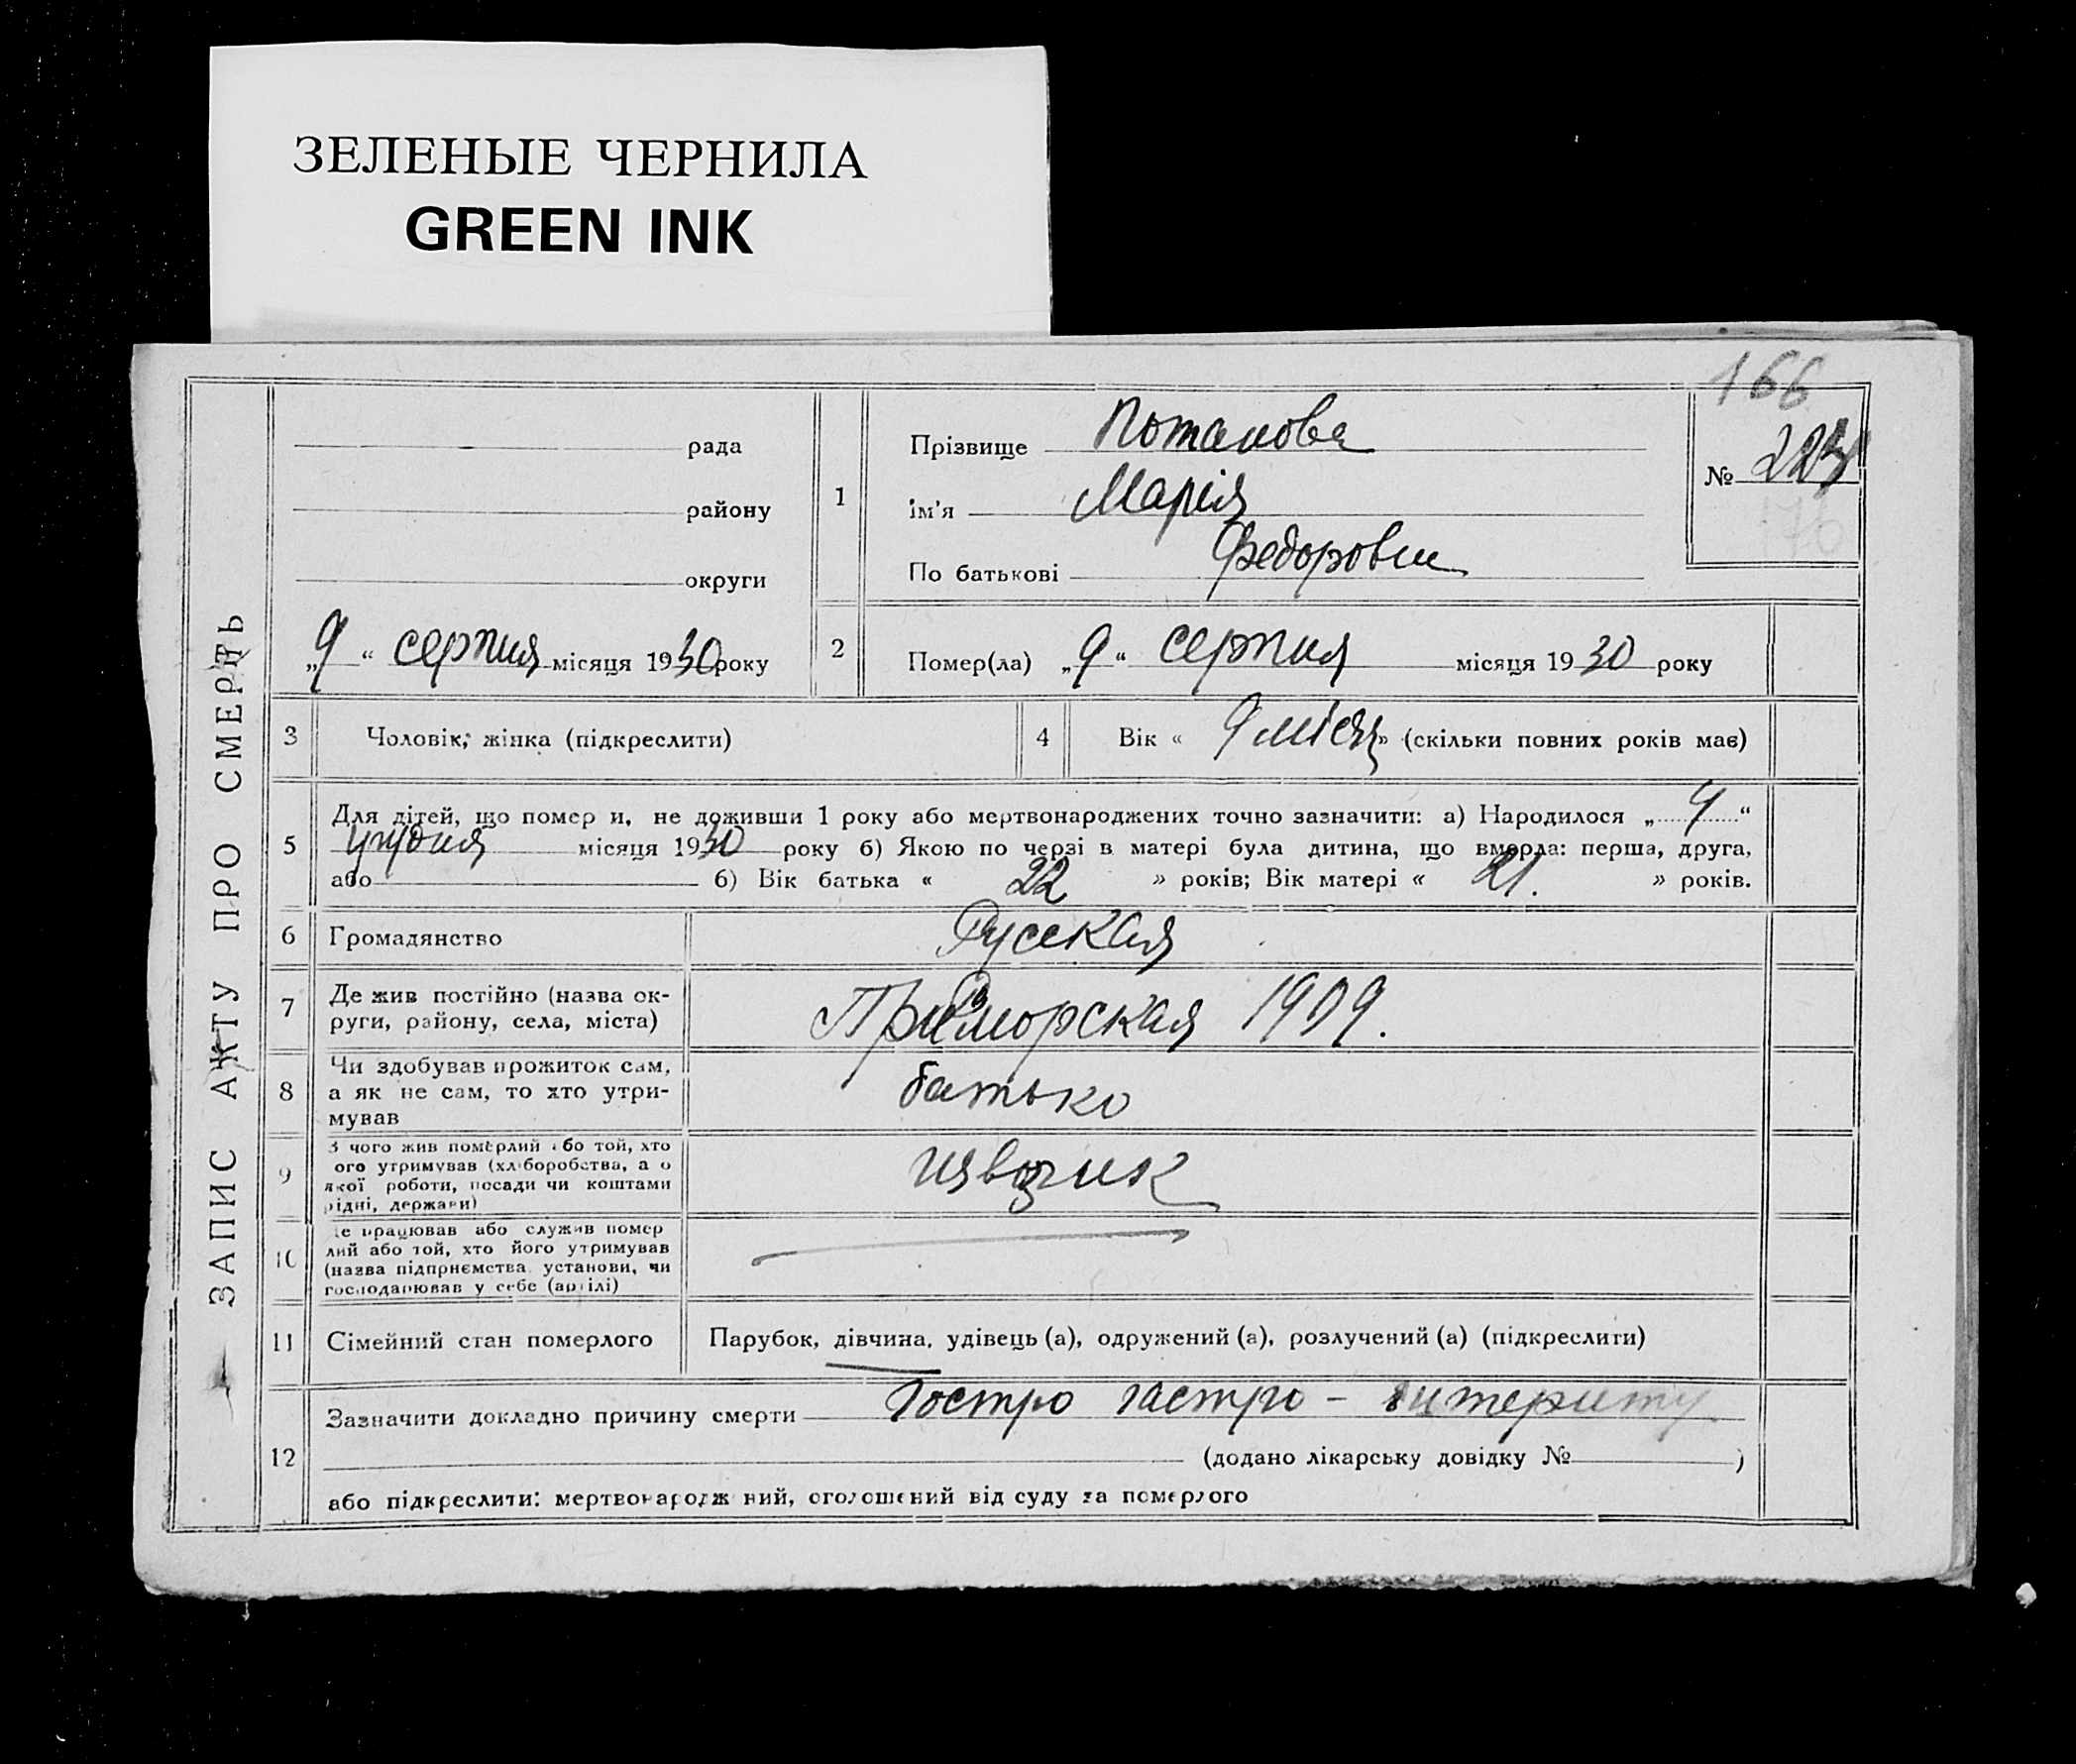 ЗЕЛЕНЫЕ ЧЕРНИЛА
GREEN INK
166
ЗАПИС АКТУ ПРО СМЕРТЬ
рада
району
округи
„9“ серпня місяця 1930 року
1
Прізвище Потапова
ім'я Марія
По батькові Федоровна
№
176
2
Помер(ла) „9“ серпня місяця 1930 року
3
Чоловік; жінка (підкреслити)
4
Вік « 9 місяц » (скільки повних років має)
5
Для дітей, що помер и, не доживши 1 року або мертвонароджених точно зазначити: а) Народилося „9“
грудня місяця 1930 року б) Якою по черзі в матері була дитина, що вмерла: перша, друга,
або б) Вік батька « 22 » років; Вік матері « 21. » років.
6
Громадянство
Русская
7
Де жив постійно (назва ок-
руги, району, села, міста)
Приморская 1909.
8
Чи здобував прожиток сам,
а як не сам, то хто утри-
мував
батько
9
З чого жив померлий або той, хто
ого утримував (хліборобства, а о
якої роботи, посади чи коштами
рідні, держави)
извозчик
10
Де працював або служив помер
лий або той, хто його утримував
(назва підприємства установи, чи
господарював у себе (артілі)
11
Сімейний стан померлого
Парубок, дівчина, удівець (а), одружений (а), розлучений (а) (підкреслити)
12
Зазначити докладно причину смерти Гостро гастро - ентериту
(додано лікарську довідку № )
або підкреслити: мертвонародж ний, оголошений від суду за померлого